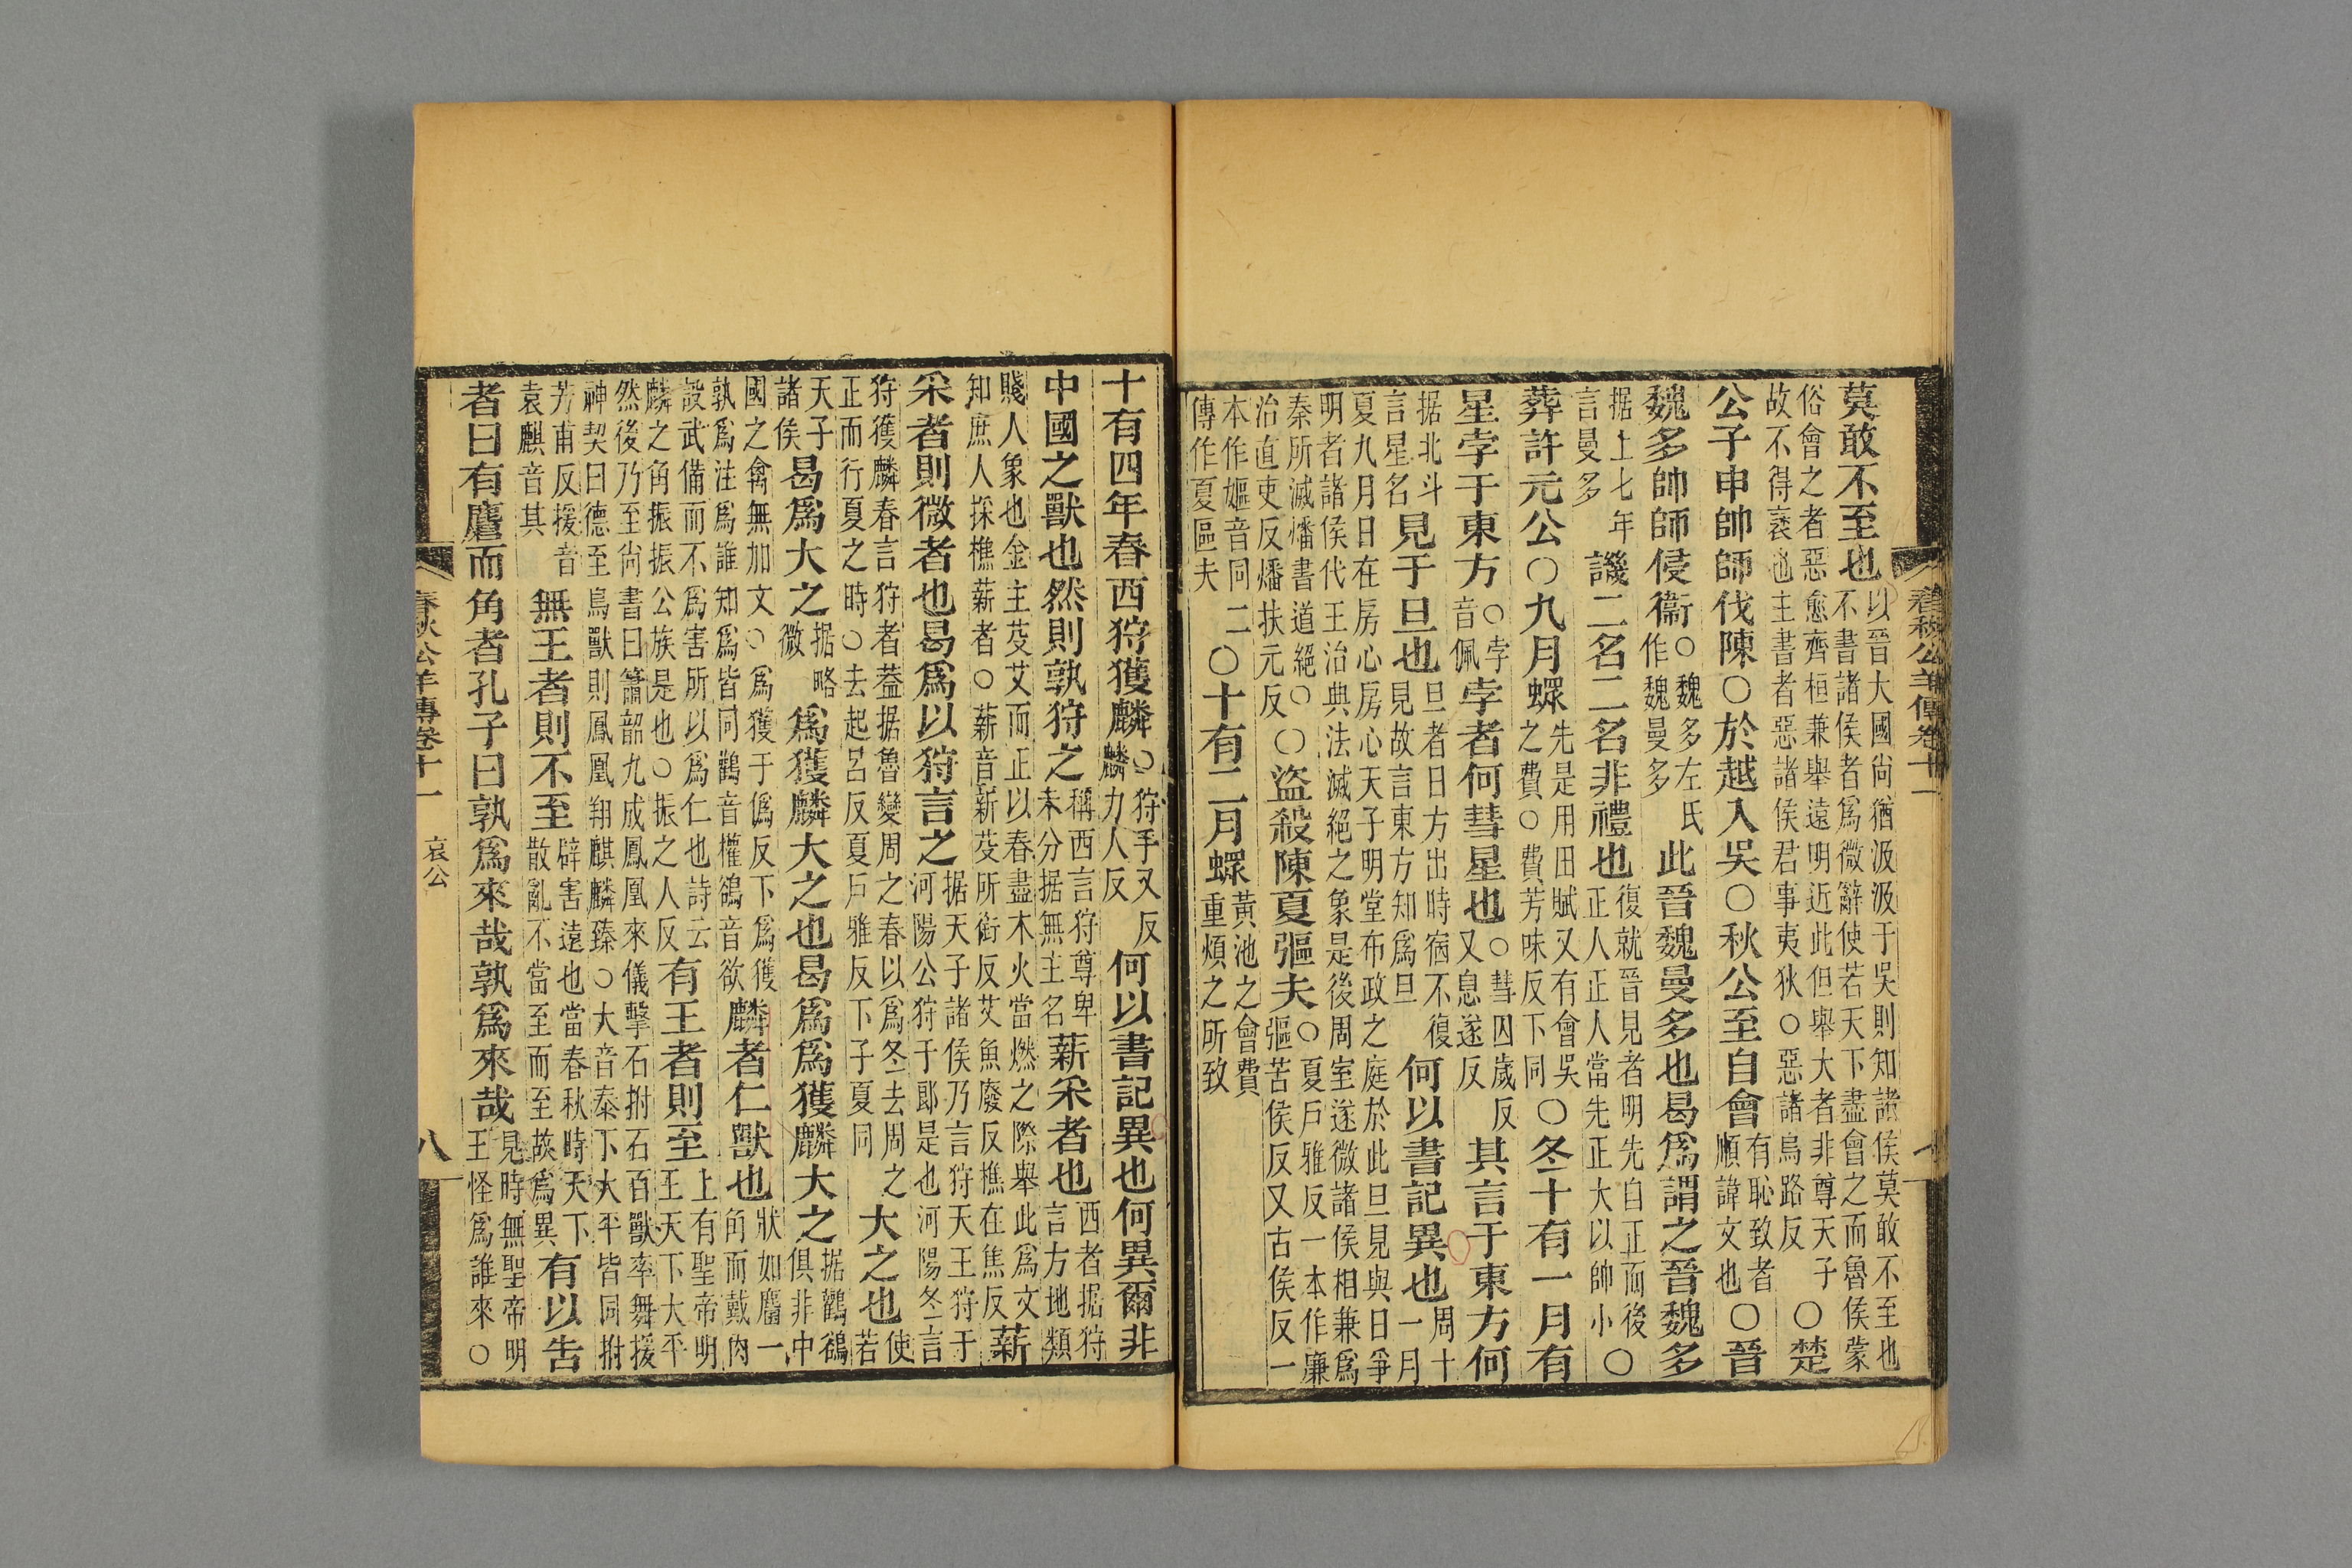 春秋公羊傳卷十一
莫敢不至也以晉大國尚猶汲汲于吳則知諸侯莫敢不至也不書諸侯者爲微辭使若天下盡會之而魯侯蒙
俗會之者惡愈齊桓兼舉遠明近此但舉大者非尊天子故不得褒也主書者惡諸侯君事夷狄○惡諸烏路反○楚
公子申帥師伐陳○於越入吳○秋公至自會有恥致者順諱文也○晉
魏多帥師侵衞○魏多左氏作魏曼多此晉魏曼多也曷爲謂之晉魏多
据上七年言曼多譏二名二名非禮也復就晉見者明先自正而後正人正人當先正大以帥小○
葬許元公○九月螽先是用田賦又有會吳之費○費芳味反下同○冬十有一月有
星孛于東方○孛音佩孛者何彗星也○彗囚歲反又息遂反其言于東方何
据北斗言星名見于旦也旦者日方出時宿不復見故言東方知爲旦何以書記異也周十一月
夏九月日在房心房心天子明堂布政之庭於此旦見與日爭明者諸侯代王治典法滅絕之象是後周室遂微諸侯相兼爲
秦所滅燔書道絕○治直吏反燔扶元反○盜殺陳夏彄夫○夏戶雅反一本作廉彄苦侯反又古侯反一
本作嫗音同二傳作夏區夫○十有二月螽黃池之會費重煩之所致
十有四年春西狩獲麟○狩手又反麟力人反何以書記異也何異爾非
中國之獸也然則孰狩之稱西言狩尊卑未分据無主名薪采者也西者据狩言方地類
賤人象也金主芟艾而正以春盡木火當燃之際舉此爲文知庶人採樵薪者○薪音新芟所銜反艾魚廢反樵在焦反薪
采者則微者也曷爲以狩言之据天子諸侯乃言狩天王狩于河陽公狩于郎是也河陽冬言
狩獲麟春言狩者葢据魯變周之春以爲冬去周之正而行夏之時○去起呂反夏戶雅反下子夏同大之也使若
天子諸侯曷爲大之据略微爲獲麟大之也曷爲爲獲麟大之据鸛鵒俱非中
國之禽無加文○爲獲于僞反下爲獲孰爲注爲誰知爲皆同鸛音權鵒音欲麟者仁獸也狀如麕一角而戴肉
設武備而不爲害所以爲仁也詩云麟之角振振公族是也○振之人反有王者則至上有聖帝明王天下大平
然後乃至尚書曰簫韶九成鳳凰來儀擊石拊石百獸率舞援神契曰德至鳥獸則鳳凰翔麒麟臻○大音泰下大平皆同拊
芳甫反援音袁麒音其無王者則不至辟害遠也當春秋時天下散亂不當至而至故爲異有以告
者曰有麏而角者孔子曰孰爲來哉孰爲來哉見時無聖帝明王怪爲誰來○
春秋公羊傳卷十一 哀公 八